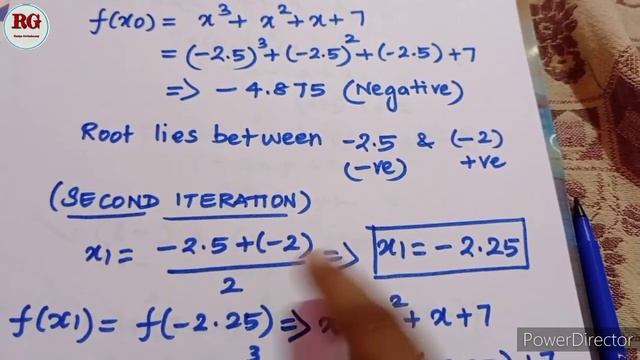 RG
f(x0) = x³ + x² + x + 7
= (-2.5)³ + (-2.5)² + (-2.5) + 7
=> - 4.875 (Negative)
Root lies between -2.5 & (-2)
(-ve) +ve
(SECOND ITERATION)
x1 = -2.5 + (-2) / 2 => x1 = - 2.25
f(x1) = f(-2.25) => x ² + x + 7
3 + 7
PowerDirector